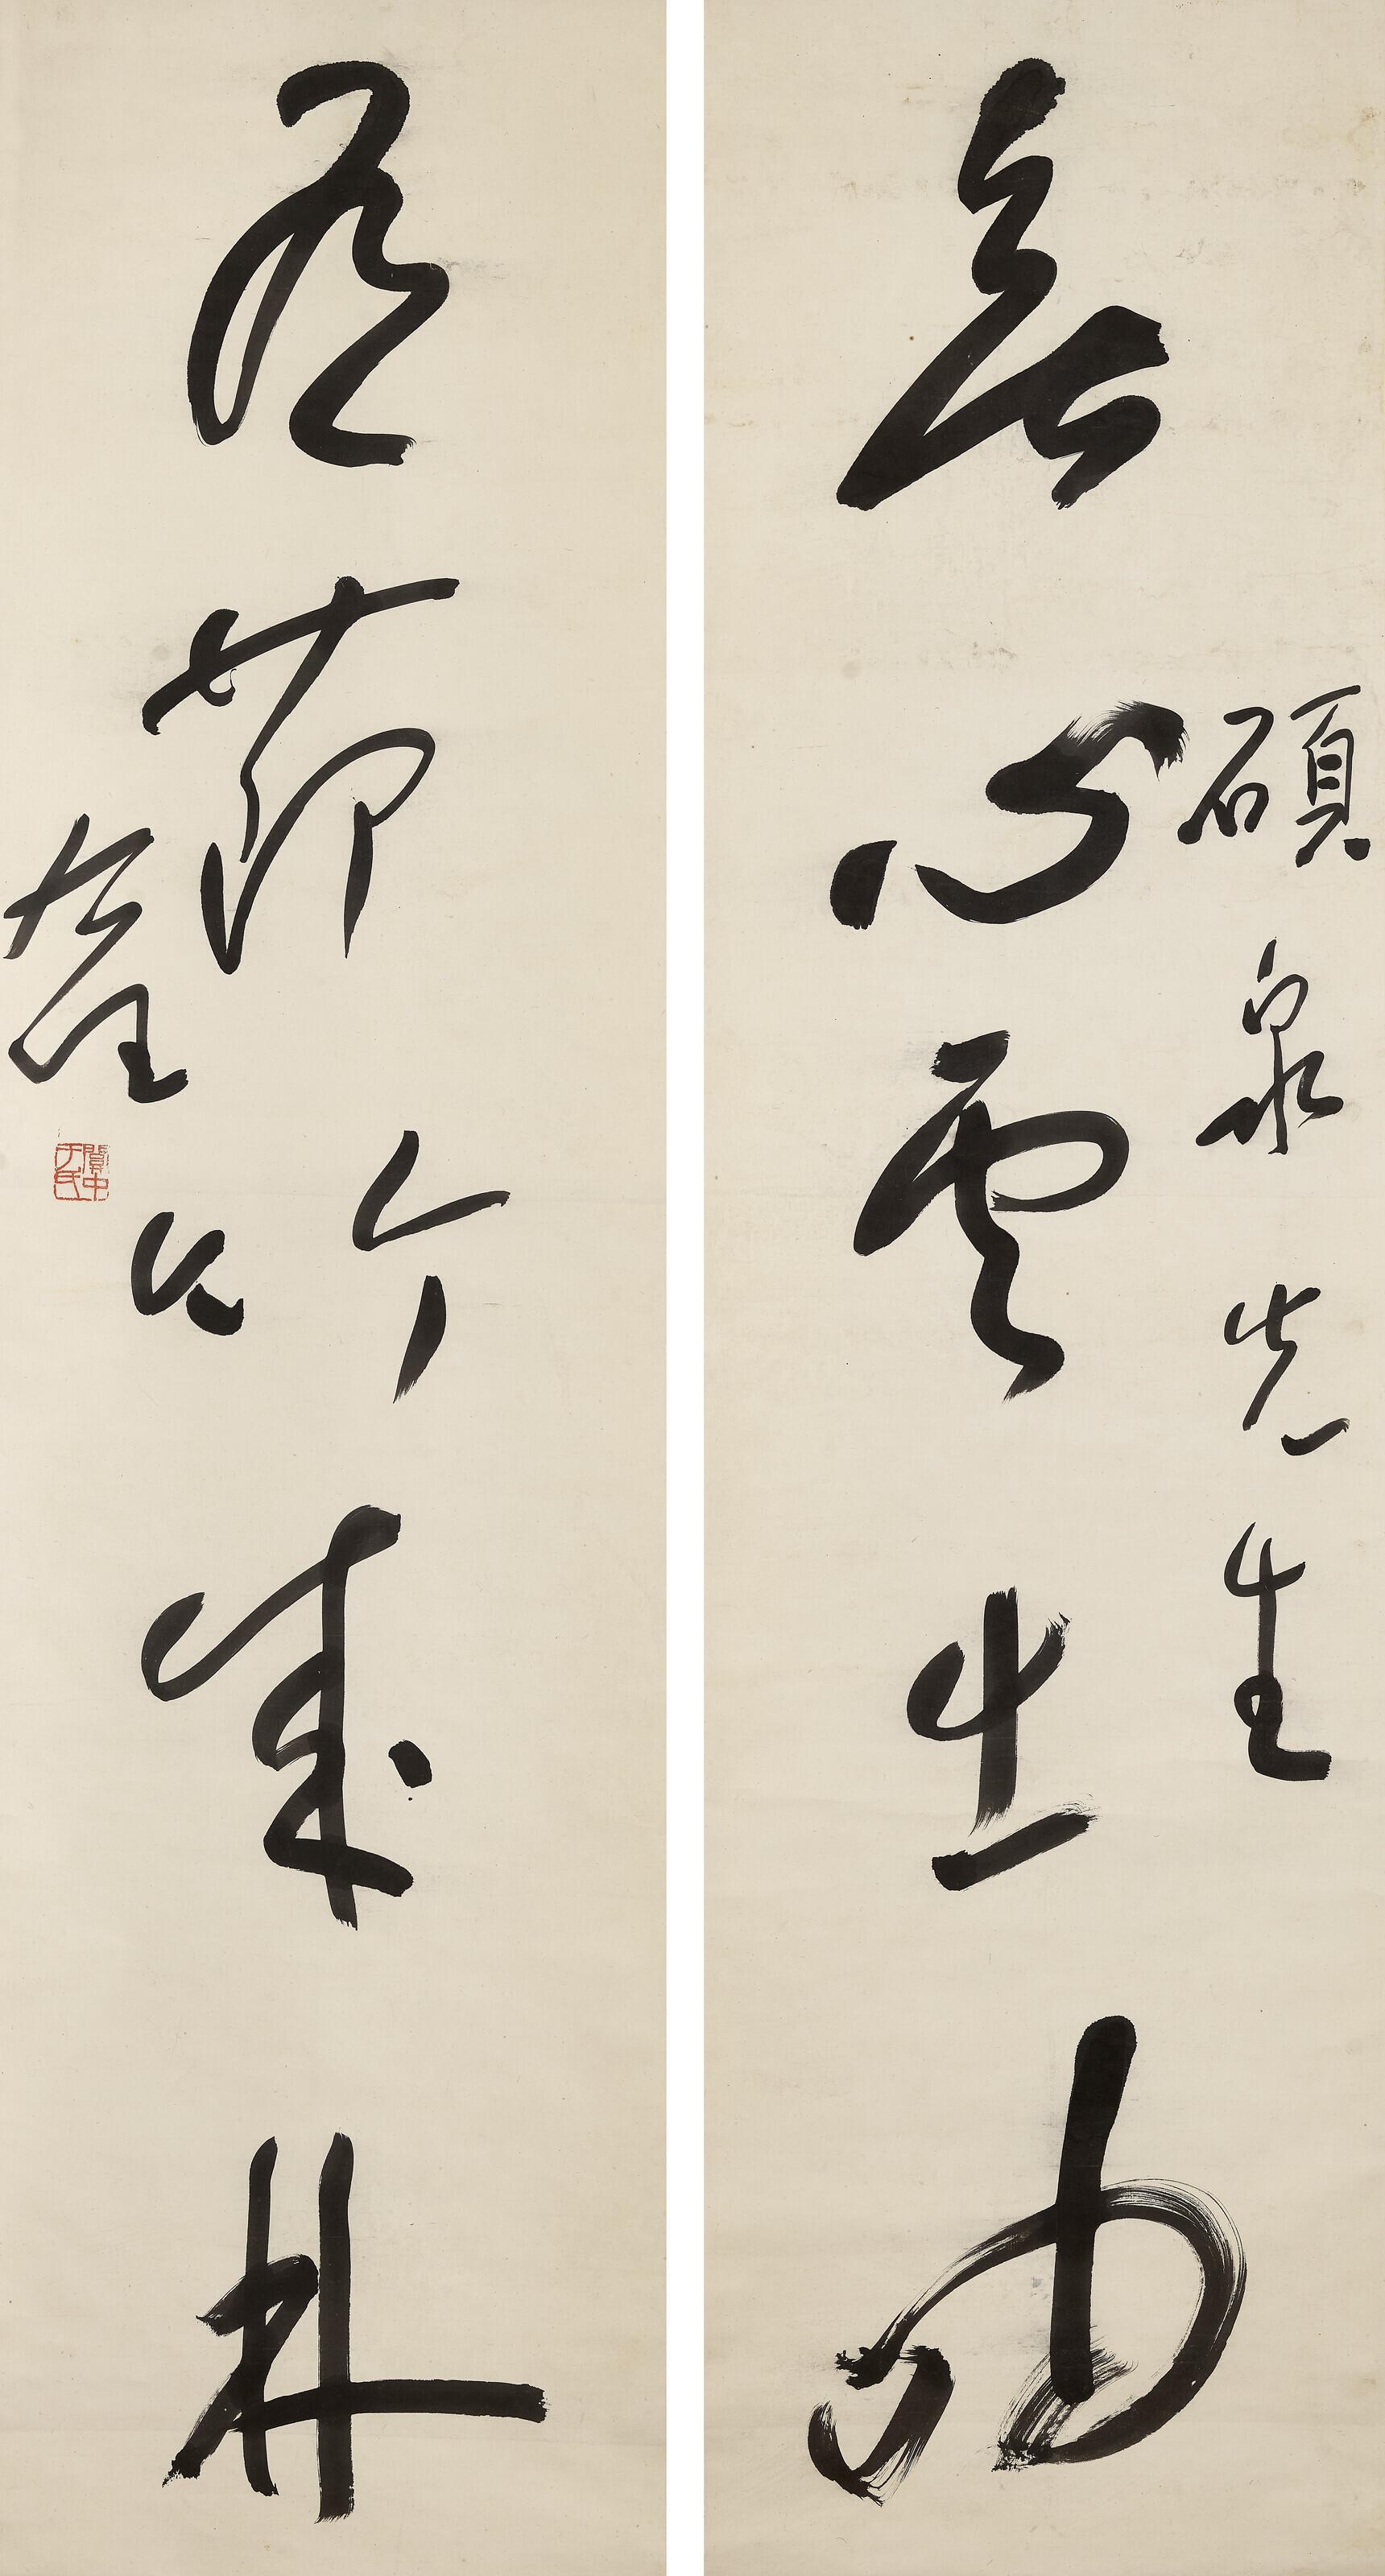 碩泉先生
無心雲出岫
有節竹成林
右任
關中于氏